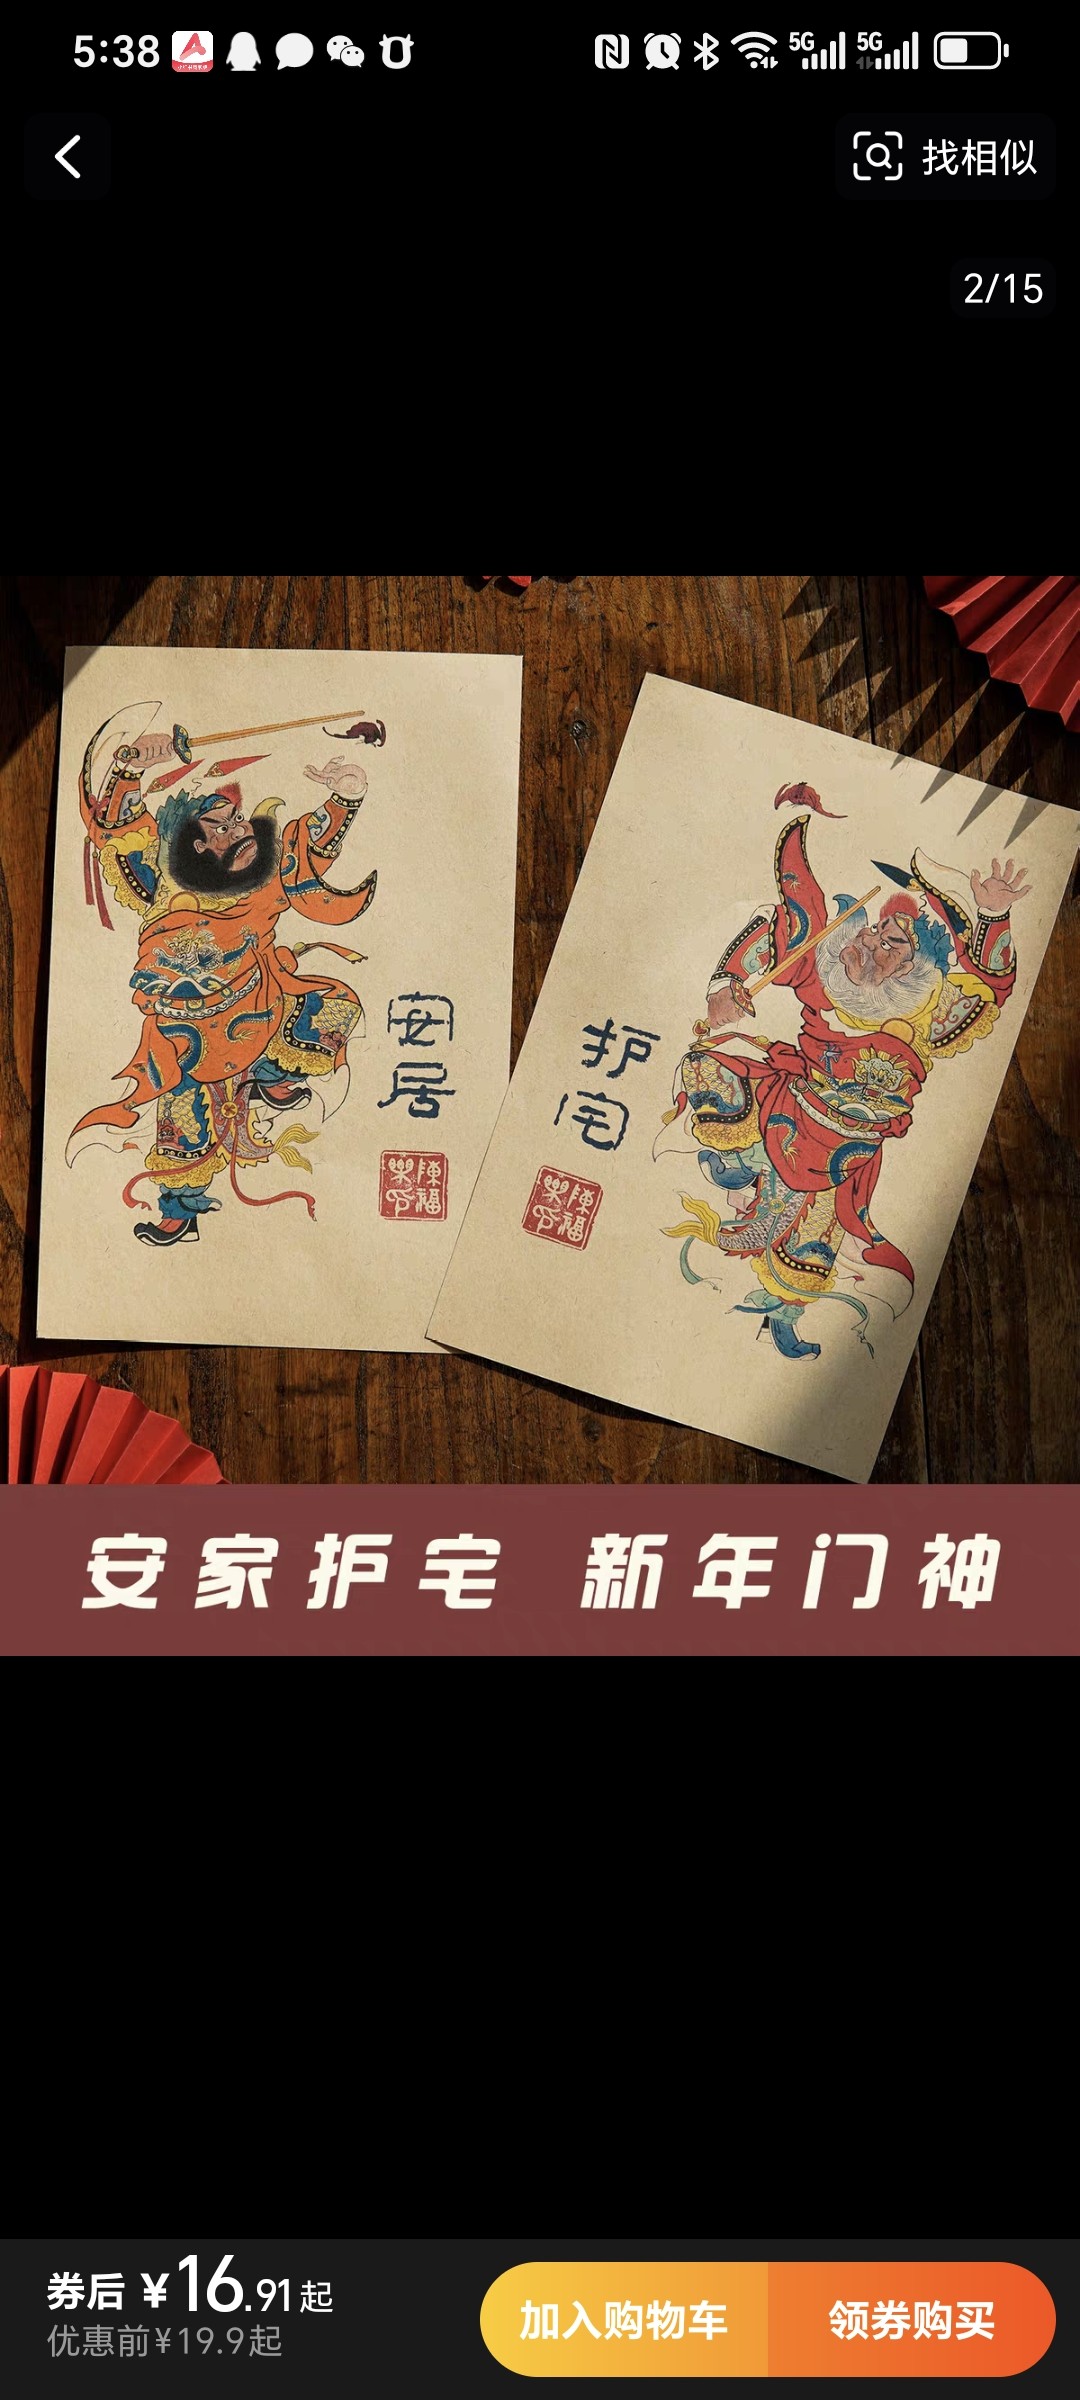 5:38
5G
5G
找相似
2/15
安
居
陳福
樂
护
宅
陳福
樂
安家护宅 新年门神
券后 ¥16.91起
优惠前¥19.9起
加入购物车
领券购买